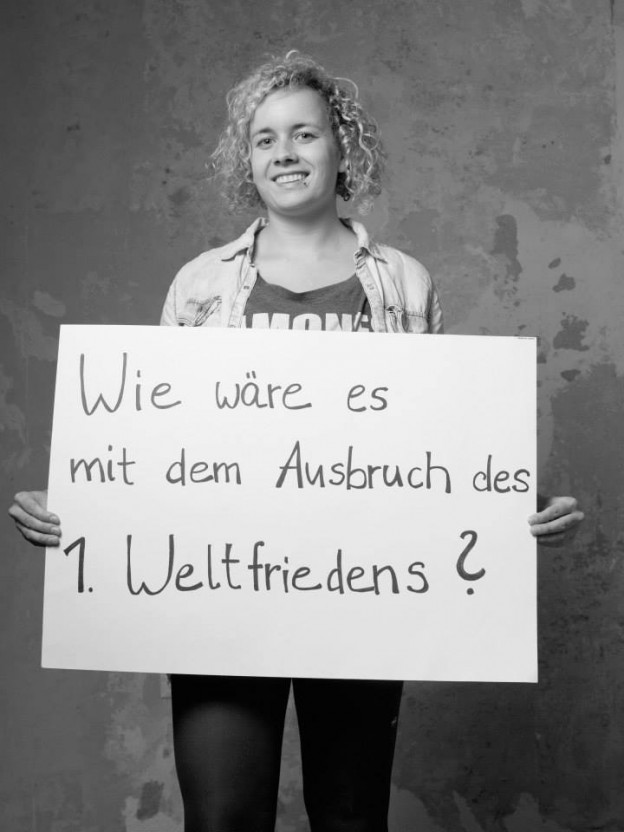 Wie wäre es
mit dem Ausbruch des
1. Weltfriedens?